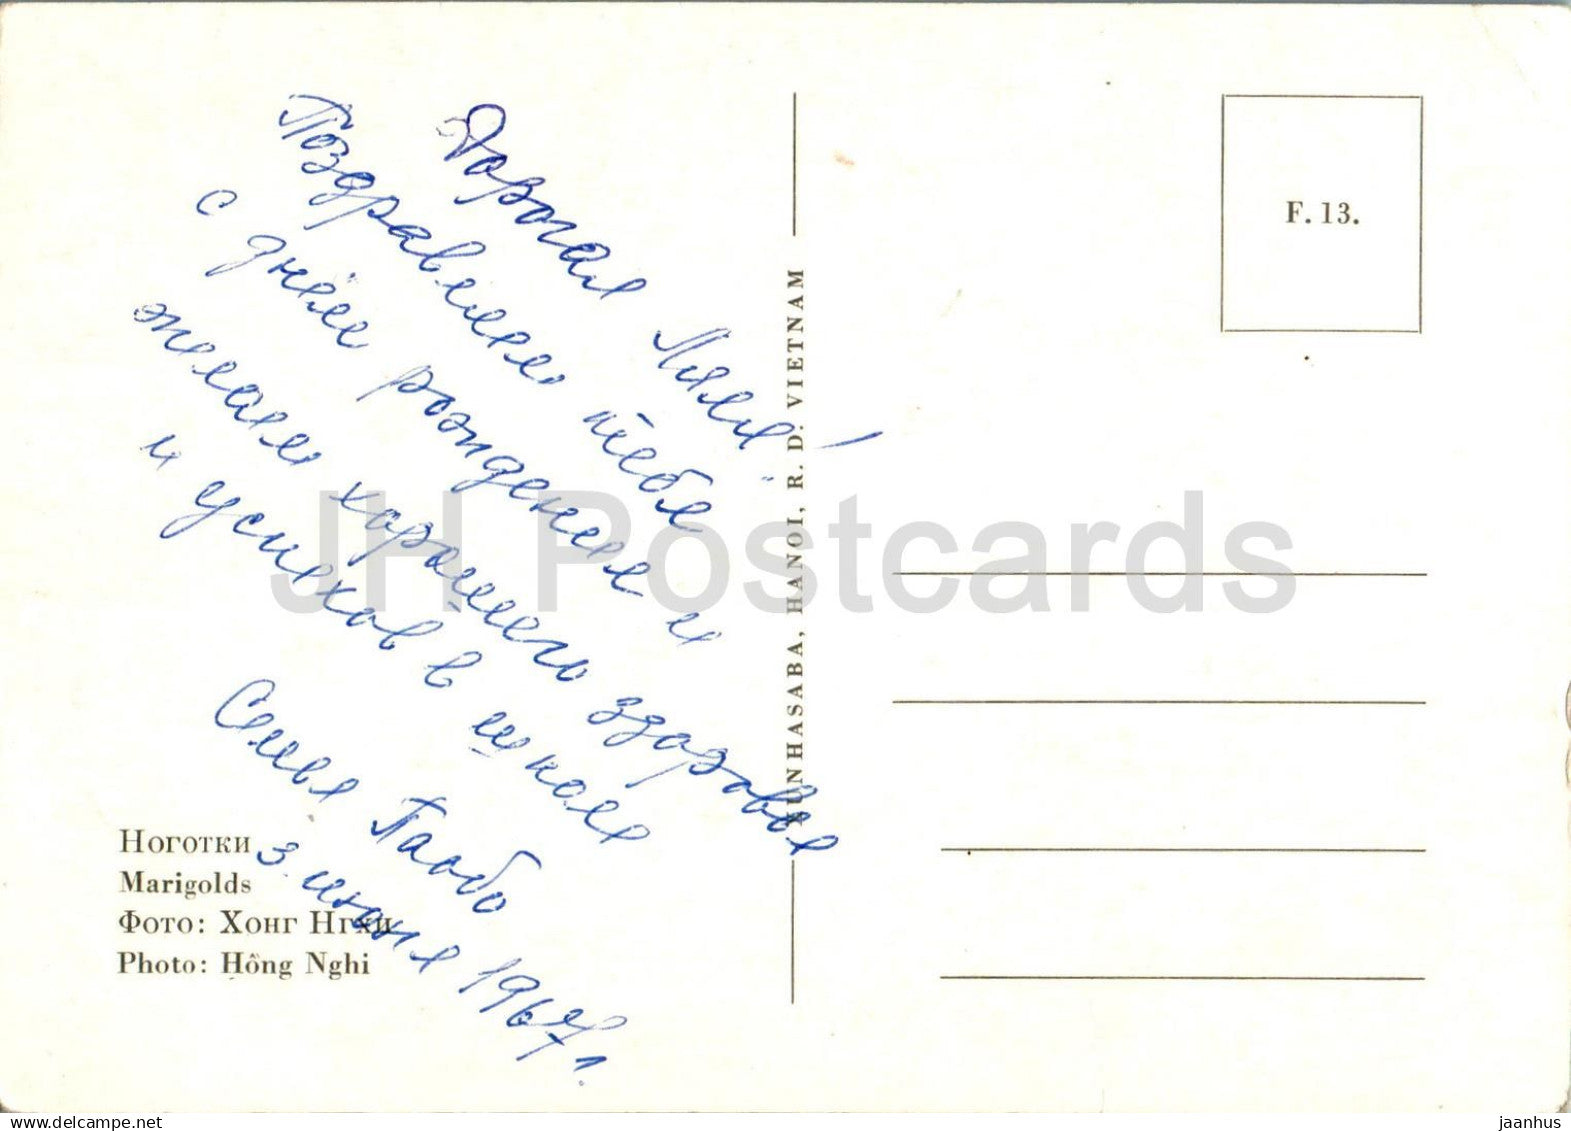 Дорогая Ляля!
Поздравляем тебя
с днём рождения и
желаем хорошего здоровья
и успехов в школе
Семья Паабо
3. июня 1967 г.
Ноготки
Marigolds
Фото: Хонг Нгхи
Photo: Hồng Nghi
XUNHASABA, HANOI, R. D. VIETNAM
F. 13.
JH Postcards
www.delcampe.net
jaanhus